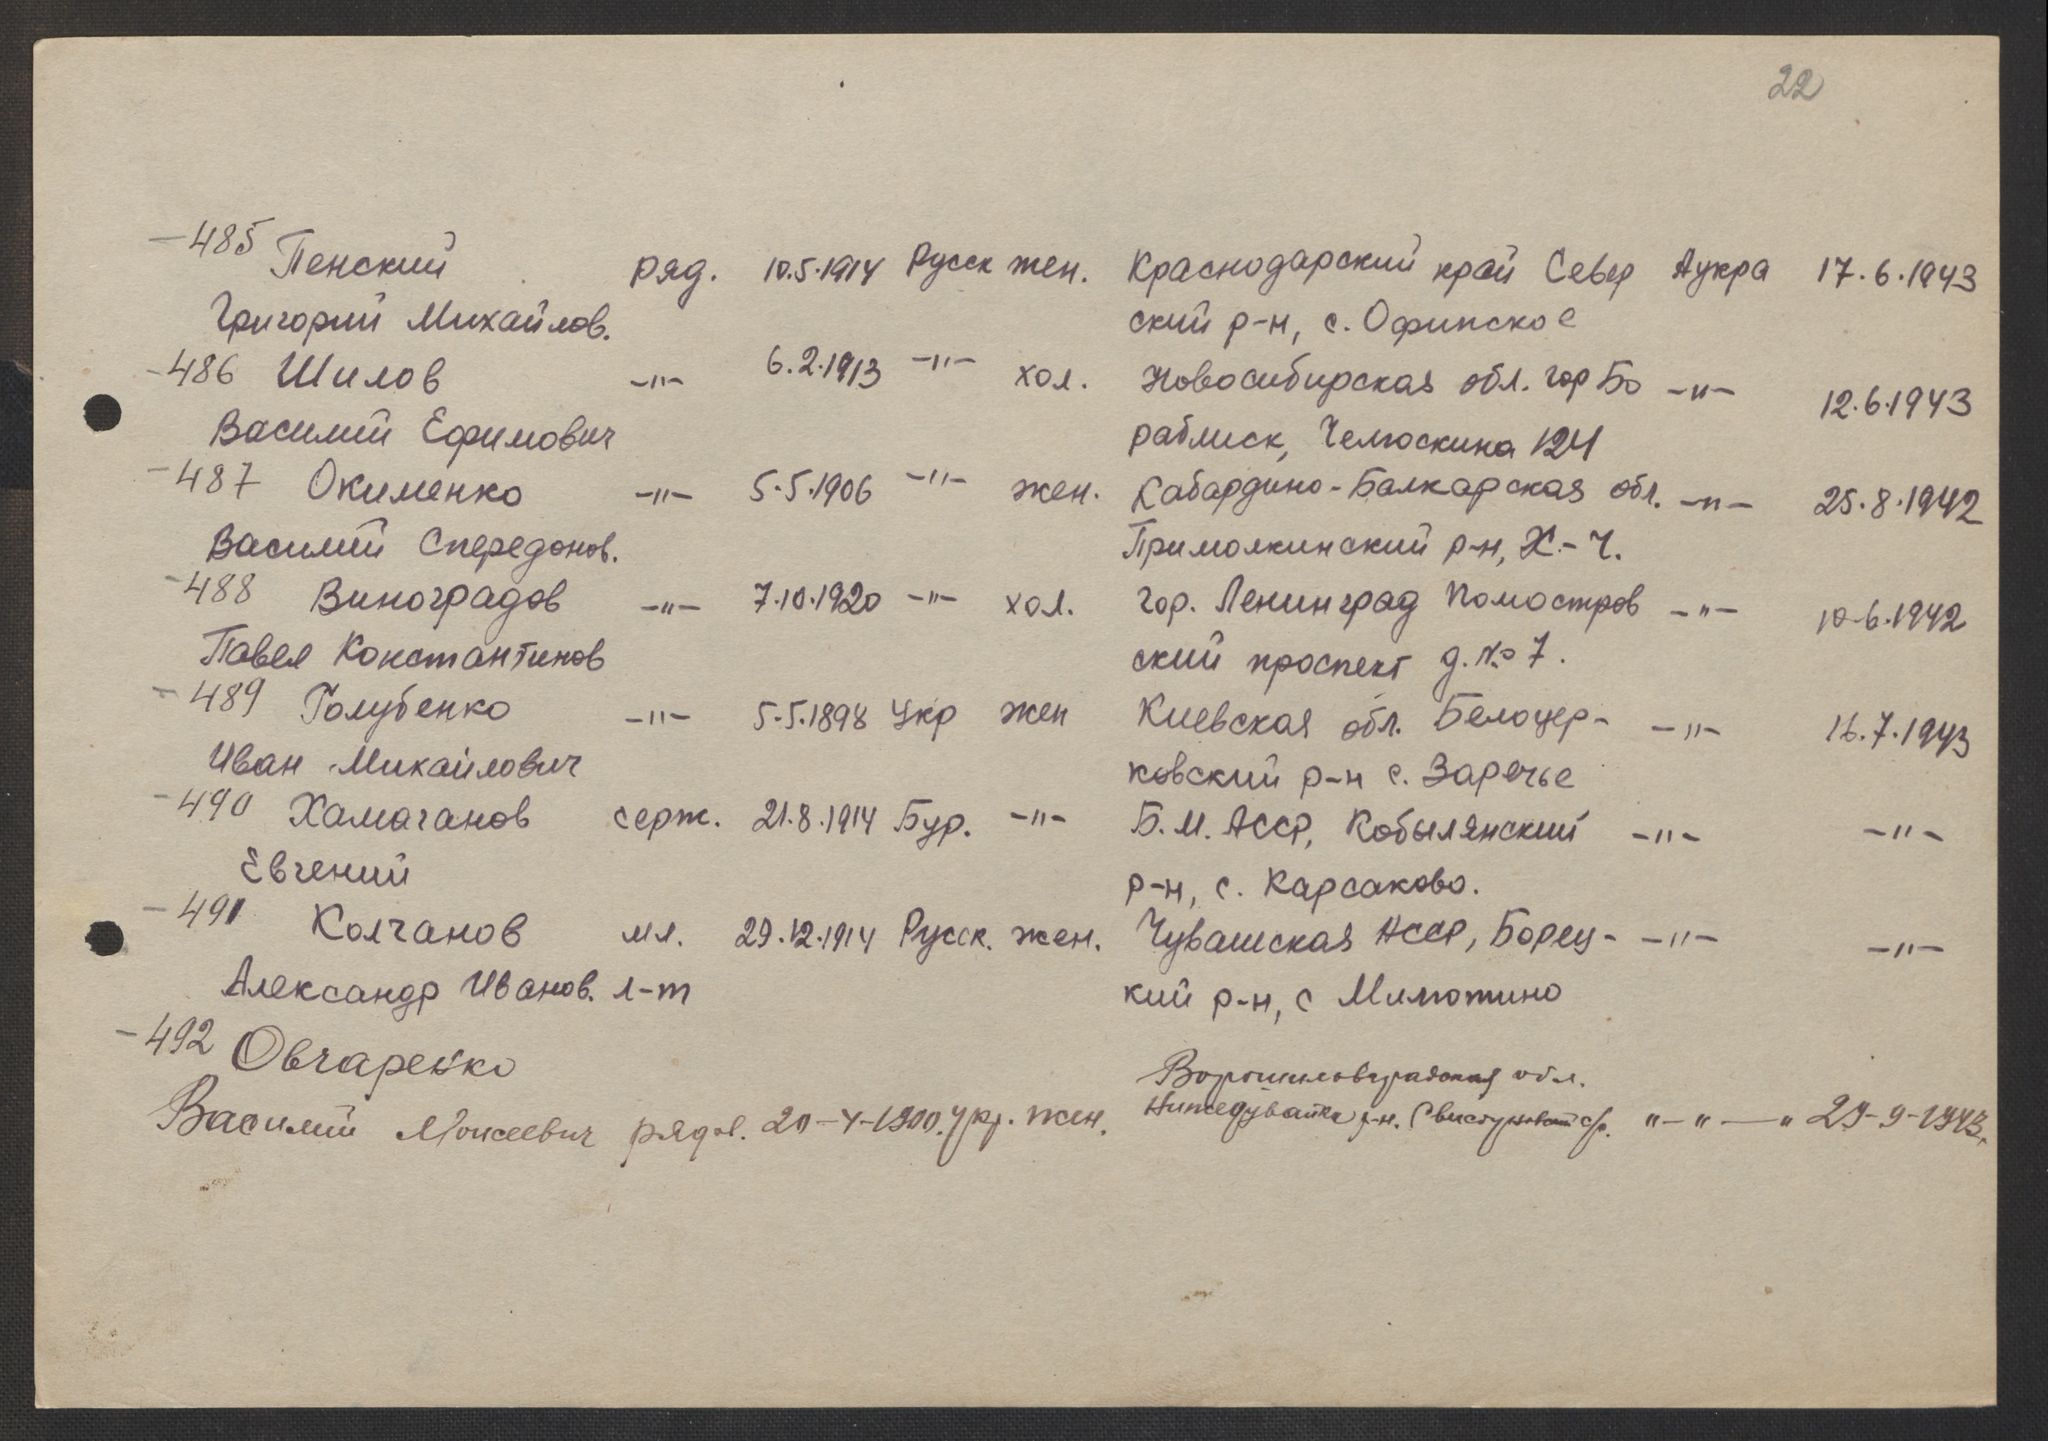 22
485 Пенский ряд. 10.5.1914 Русск жен. Краснодарский край Север Аукра 17.6.1943
Григорий Михайлов. ский р-н, с. Офипское
486 Шилов -"- 6.2.1913 -"- хол. Новосибирская обл. гор Бо -"- 12.6.1943
Василий Ефимович раблиск, Челюскина 124
487 Окименко -"- 5.5.1906 -"- жен. Кабардино-Балкарская обл. -"- 25.8.1942
Василий Спередонов. Прималкинский р-н, Х.-Ч.
488 Виноградов -"- 7.10.1920 -"- хол. гор. Ленинград Помостров -"- 10.6.1942
Павел Константинов ский проспект д. № 7.
489 Голубенко -"- 5.5.1898 Укр жен Киевская обл. Белоцер- -"- 16.7.1943
Иван Михайлович ковский р-н с. Заречье
490 Хамаганов серж. 21.8.1914 Бур. -"- Б.М. АССР, Кобылянский -"- -"-
Евгений р-н, с. Карсаково.
491 Колчанов мл. 29.12.1914 Русск. жен. Чувашская АССР, Борец- -"- -"-
Александр Иванов. л-т кий р-н, с Милютино
492 Овчаренко Ворошиловградская обл.
Василий Моисеевич рядов. 20-4-1900. укр. жен. р-н. "-"-" 29-9-1943.